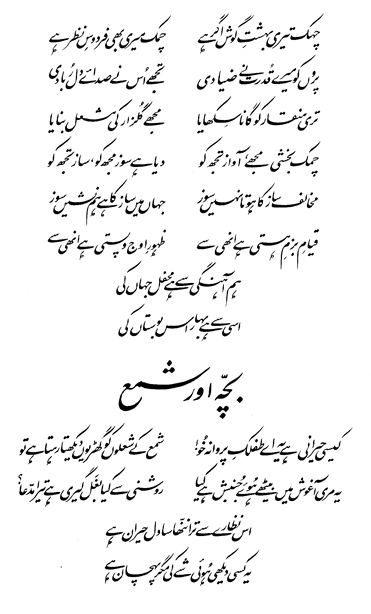 چہک تیری بہشتِ گوش اگر ہے چمک میری بھی فردوسِ نظر ہے
پروں کو میرے قدرت نے ضیا دی تجھے اُس نے صدائے دل رُبا دی
تری منقار کو گانا سکھایا مجھے گلزار کی مشعل بنایا
چمک بخشی مجھے، آواز تجھ کو دیا ہے سوز مجھ کو، ساز تجھ کو
مخالف ساز کا ہوتا نہیں سوز جہاں میں ساز کا ہے ہم نشیں سوز
قیامِ بزمِ ہستی ہے انھی سے ظہورِ اوج و پستی ہے انھی سے
ہم آہنگی سے ہے محفل جہاں کی
اسی سے ہے بہار اس بوستاں کی
بچّہ اور شمع
کیسی حیرانی ہے یہ اے طفلکِ پروانہ خُو! شمع کے شعلوں کو گھڑیوں دیکھتا رہتا ہے تو
یہ مری آغوش میں بیٹھے ہوئے جنبش ہے کیا روشنی سے کیا بغل گیری ہے تیرا مدّعا؟
اس نظارے سے ترا ننّھا سا دل حیران ہے
یہ کسی دیکھی ہوئی شے کی مگر پہچان ہے